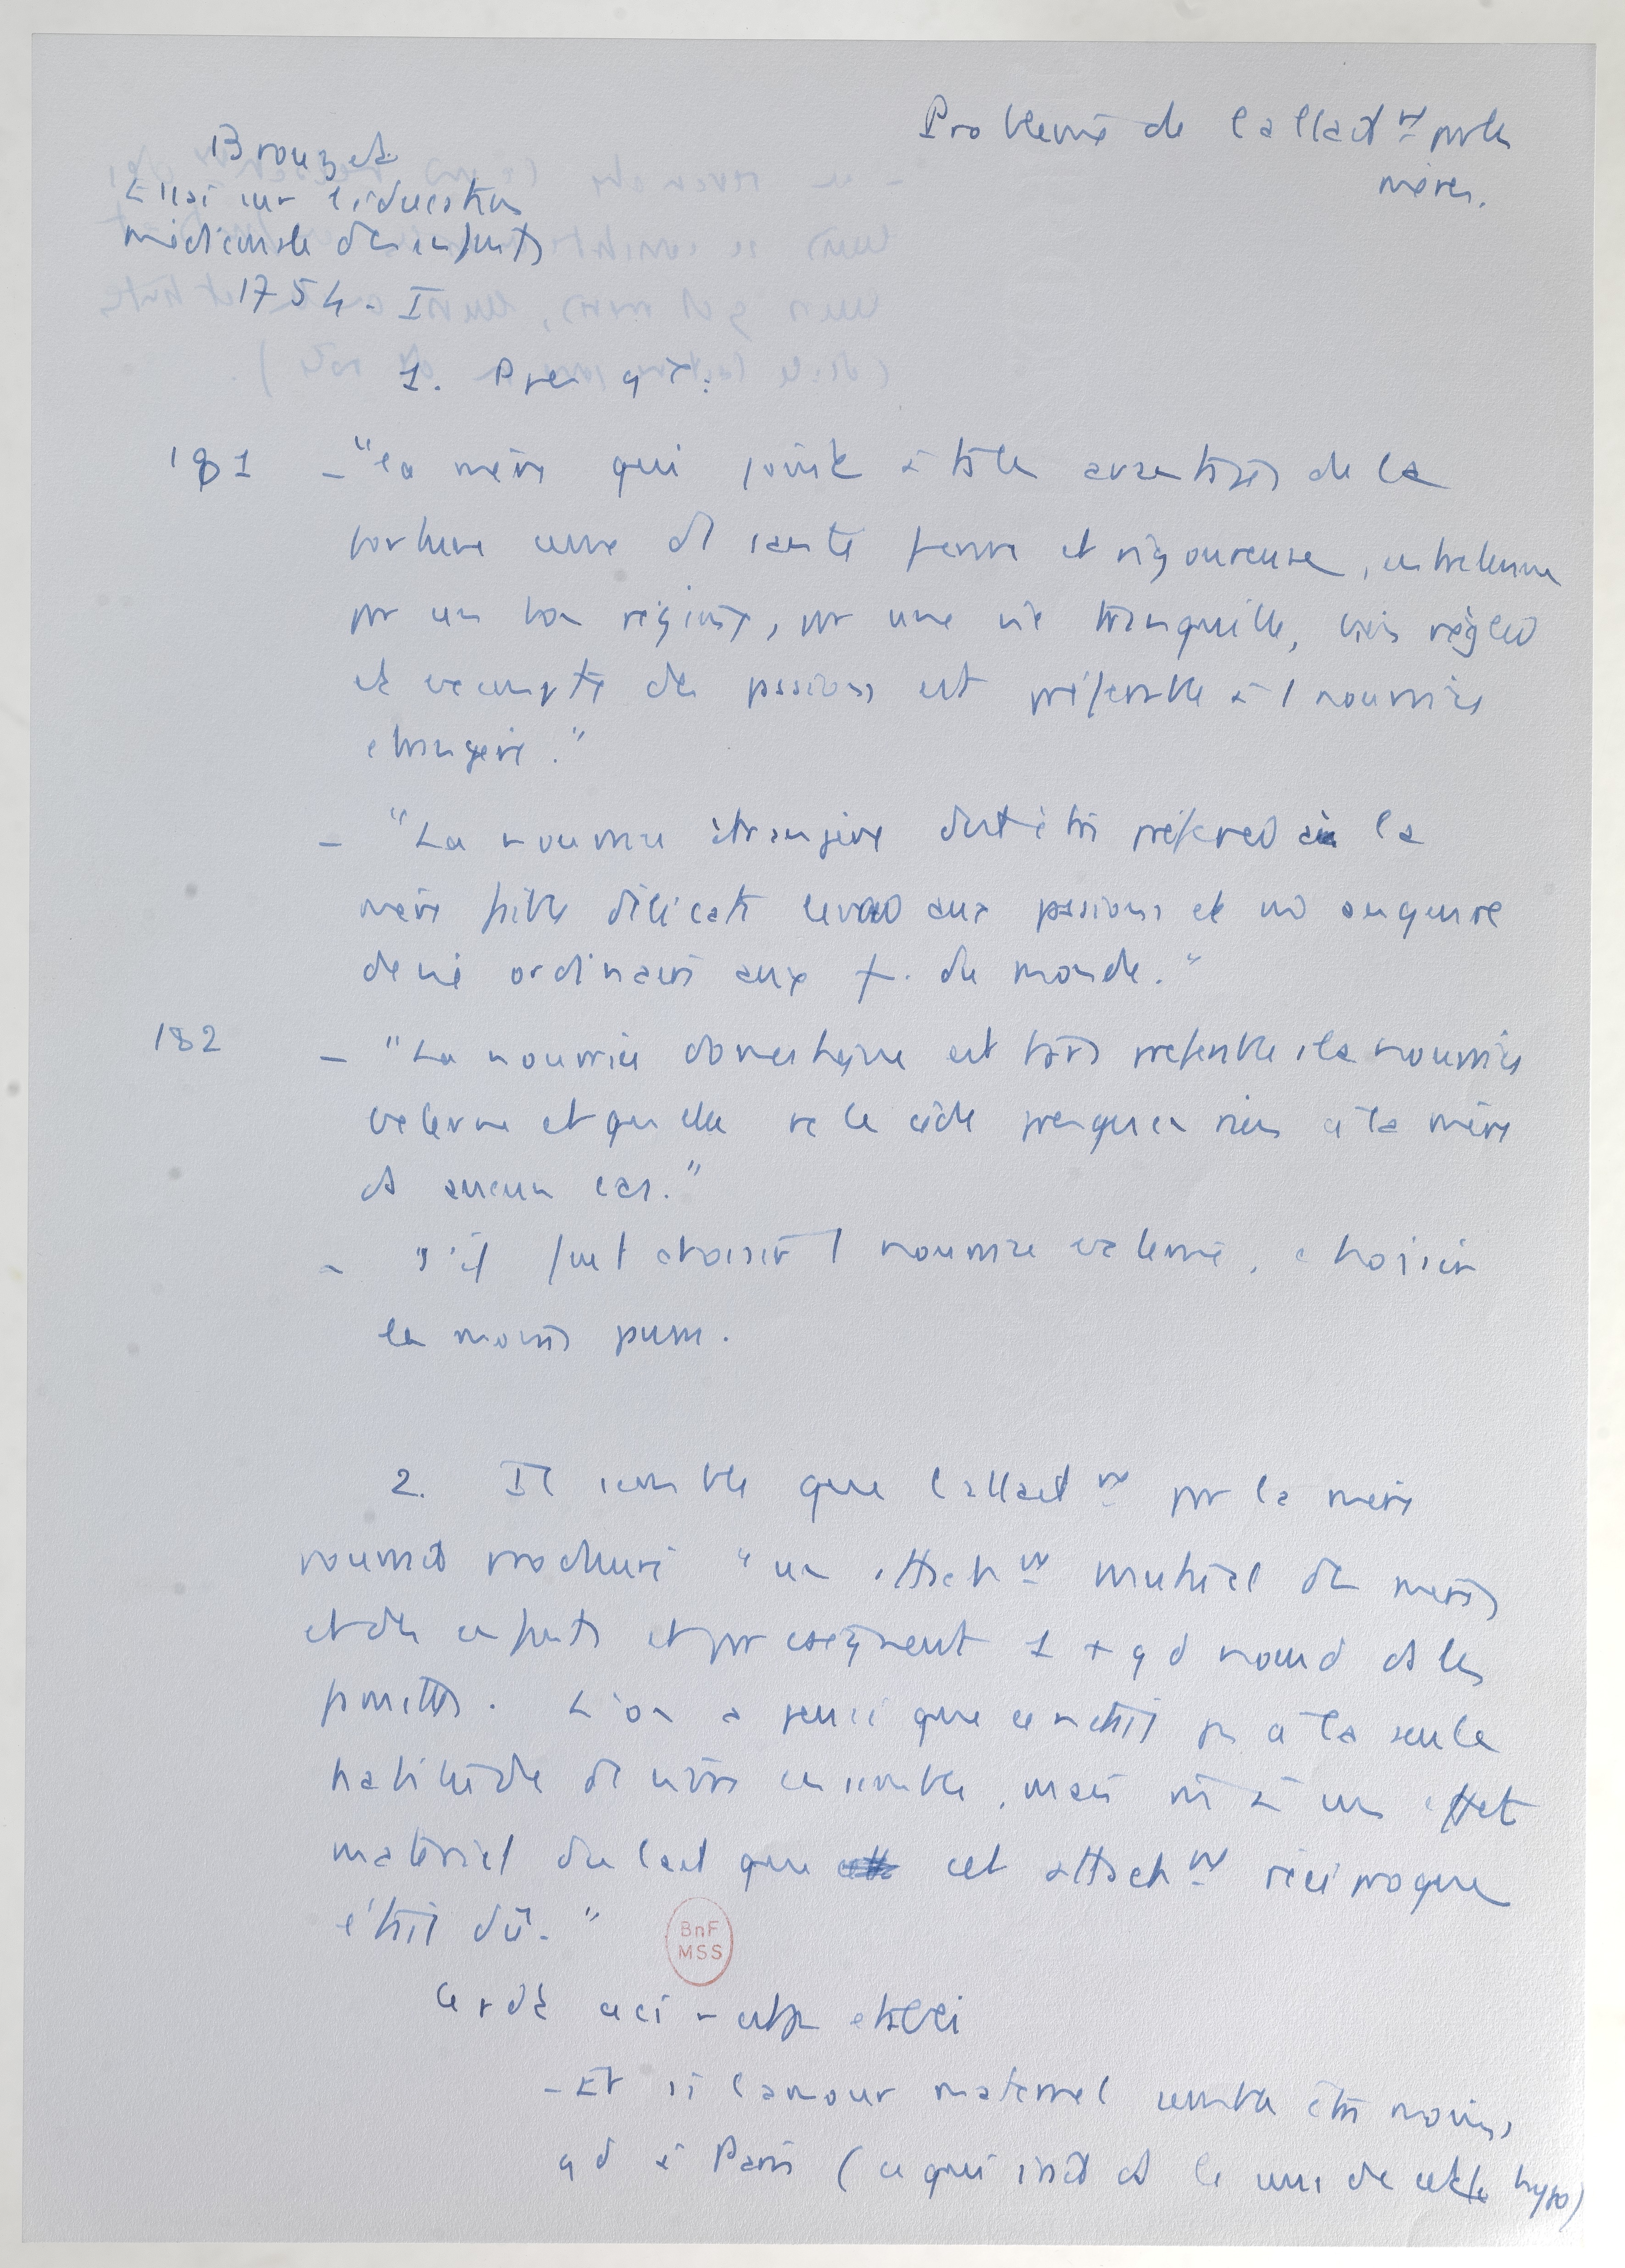 Problème de l'allait^nt par les
mères.
Brouzet
Essai sur l'éducation
médicinale des enfants
1754. I
1. Prescrit:
181 - "la mère qui joint à ts les avantages de la
fortune une santé ferme et vigoureuse, entretenue
par un bon régime, par une vie tranquille, bien réglée
et exempte des passions est préférable à 1 nourrice
étrangère."
- "La nourrice étrangère doit être préférée à la
mère faible délicate livrée aux passions et au genre
de vie ordinaire aux f. du monde."
182 - "La nourrice domestique est très préférable à la nourrice
externe et qu'elle ne le cède presque en rien à la mère
ds aucun cas."
- s'il faut choisir 1 nourrice externe, choisir
la moins pauvre.
2. Il semble que l'allait^nt par la mère
pourrait produire "un attach^nt mutuel des mères
et des enfants et par conséquent 1 + gd nœud ds les
familles. L'on a pensé que ce n'était pas à la seule
habitude de vivre ensemble, mais à un effet
matériel du lait que cet attach^nt réciproque
était dû."
Ce rôle ceci n'est pas établi
- Et si l'amour maternel semble être moins
gd à Paris (ce qui irait ds le sens de cette hypo)
BnF
MSS